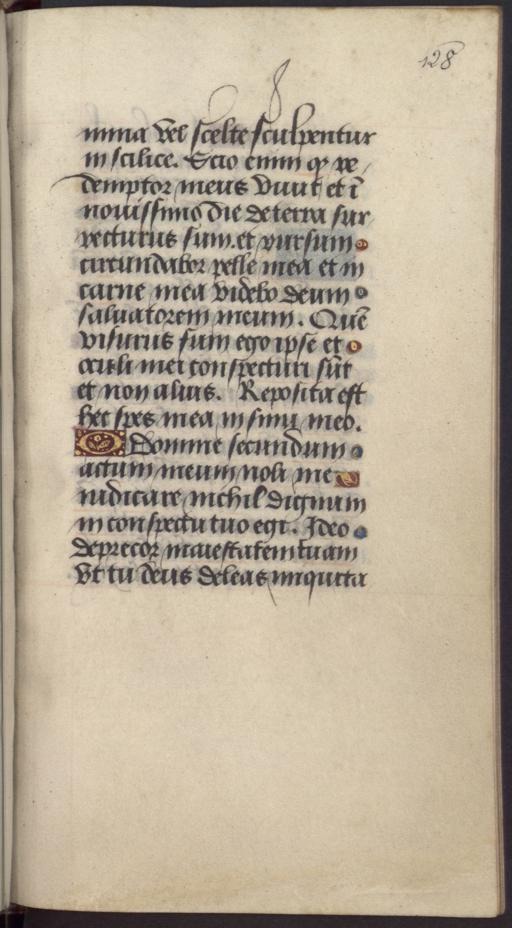 128
mina vel scelte sculpentur
in scilice. Scio enim qz re
demptor meus viuit et ī
nouissimo die de terra sur
recturus sum. et rursum
circundabor pelle mea et in
carne mea videbo deum
saluatorem meum. Quē
visurus sum ego ipse et
oculi mei conspecturi sūt
et non alius. Reposita est
hec spes mea in sinu meo.
Domine secundum
actum meum noli me
iudicare nichil dignum
in conspectu tuo egi. Ideo
deprecor maiestatem tuam
vt tu deus deleas iniquita